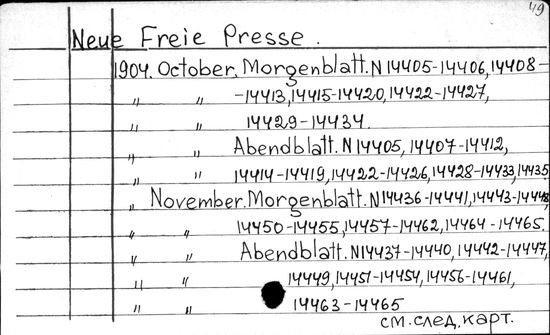 49
Neue Freie Presse.
1904. October. Morgenblatt. N 14405-14406, 14408-
" " -14413, 14415-14420, 14422-14427,
" " 14429-14434.
" " Abendblatt. N 14405, 14407-14412,
" " 14414-14419, 14422-14426, 14428-14433, 14435
" November. Morgenblatt. N 14436-14441, 14443-14448,
" " 14450-14455, 14457-14462, 14464-14465.
" " Abendblatt. N 14437-14440, 14442-14447,
" " 14449, 14451-14454, 14456-14461,
" " 14463-14465
см. след. карт.